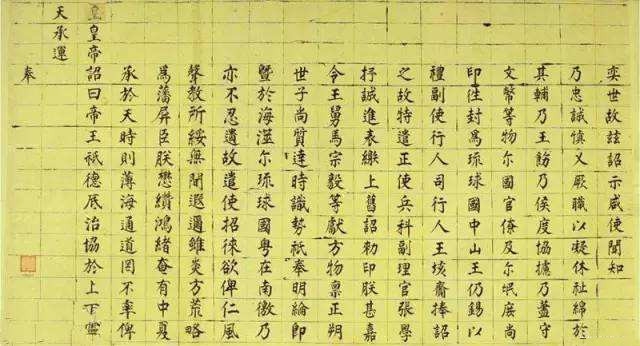 奉
天承運
皇皇帝詔曰帝王祇德底治協於上下靈
承於天時則薄海通道罔不率俾
為藩屏臣朕懋纘鴻緒奄有中夏
聲教所綏無間遐邇雖炎方荒略
亦不忍遺故遣使招徠欲俾仁風
暨於海澨尔琉球國粵在南徼乃
世子尚質達時識勢祇奉明綸即
令王舅馬宗毅等獻方物稟正朔
抒誠進表繳上舊詔勅印朕甚嘉
之故特遣正使兵科副理官張學
禮副使行人司行人王垓齎捧詔
印往封為琉球國中山王仍錫以
文幣等物尔國官僚及尔氓庶尚
其輔乃王飭乃侯度協攄乃藎守
乃忠誠慎乂厥職以凝休祉綿於
奕世故茲詔示咸使聞知